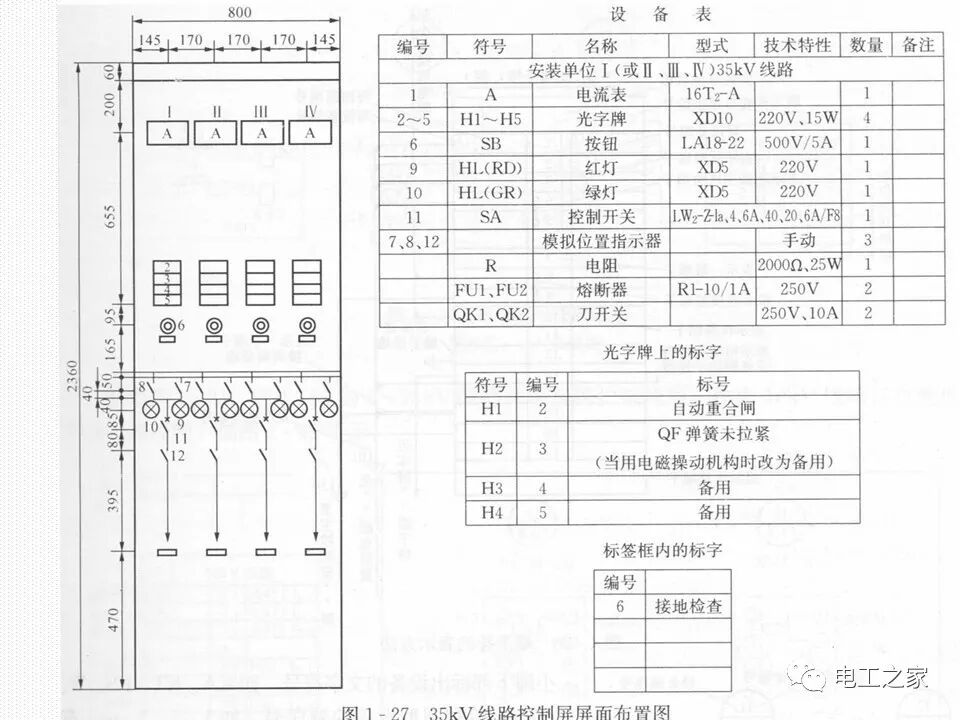 800
145 170 170 170 145
60
200
655
95
165
50
40
40
85
80
395
470
2360
Ⅰ Ⅱ Ⅲ Ⅳ
A A A A
2
3
4
5
6
8 7
10 9
11
12
设备表
编号 符号 名称 型式 技术特性 数量 备注
安装单位Ⅰ(或Ⅱ、Ⅲ、Ⅳ)35kV线路
1 A 电流表 16T₂-A 1
2~5 H1~H5 光字牌 XD10 220V、15W 4
6 SB 按钮 LA18-22 500V/5A 1
9 HL(RD) 红灯 XD5 220V 1
10 HL(GR) 绿灯 XD5 220V 1
11 SA 控制开关 LW₂-Z-la,4,6A,40,20,6A/F8 1
7,8,12 模拟位置指示器 手动 3
R 电阻 2000Ω、25W 1
FU1、FU2 熔断器 R1-10/1A 250V 2
QK1、QK2 刀开关 250V、10A 2
光字牌上的标字
符号 编号 标号
H1 2 自动重合闸
H2 3 QF弹簧未拉紧
(当用电磁操动机构时改为备用)
H3 4 备用
H4 5 备用
标签框内的标字
编号
6 接地检查
电工之家
图1-27 35kV线路控制屏屏面布置图